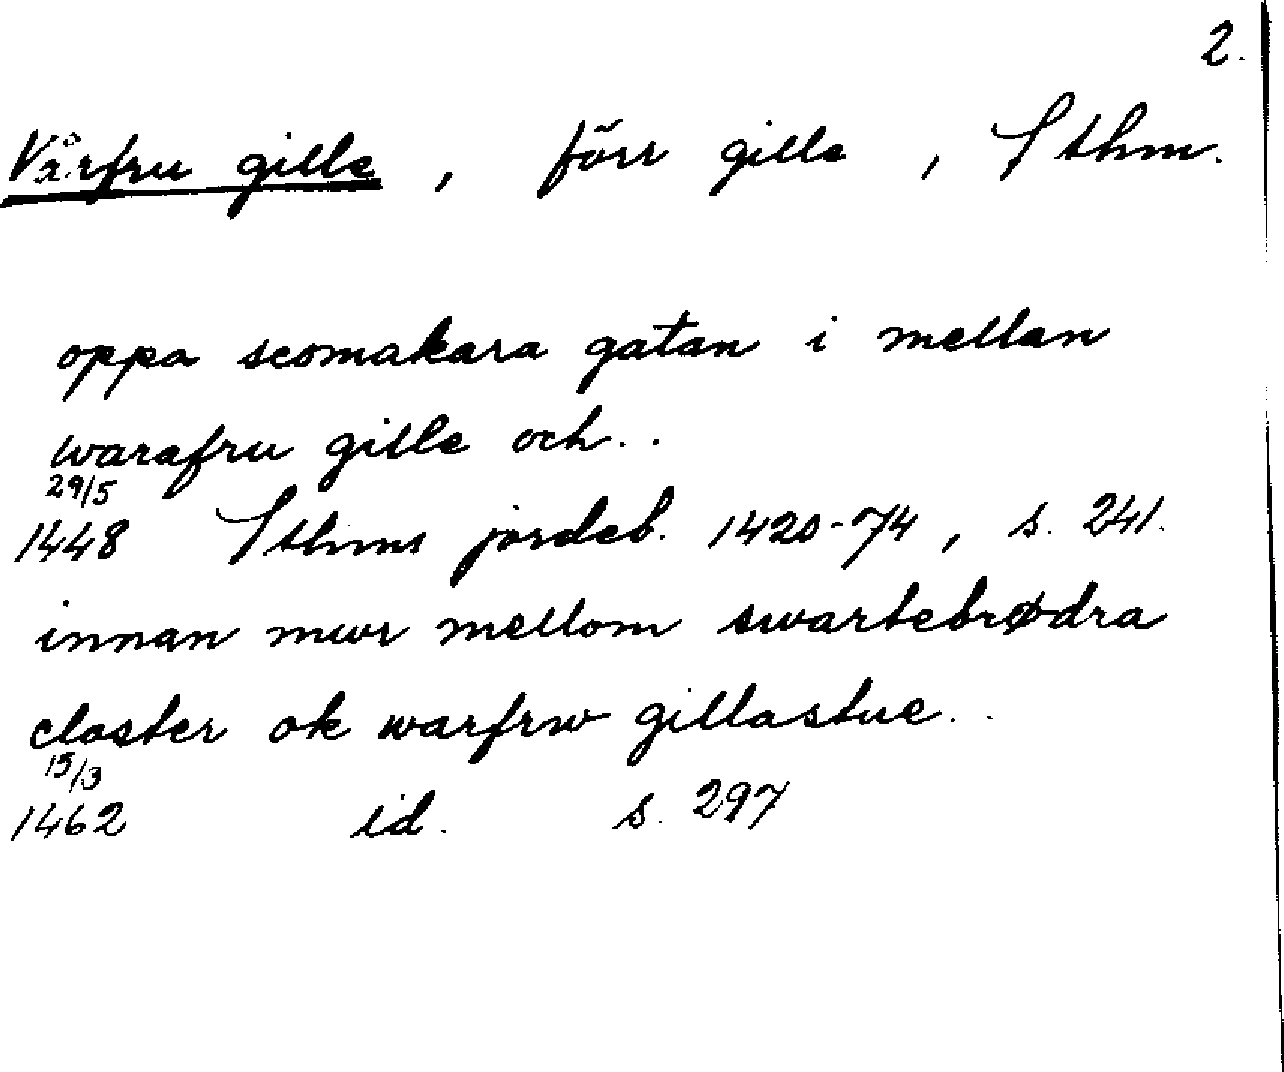 2.
Vårfru gille, förr gille, Sthm.
oppa scomakara gatan i mellan
warafru gille och..
29/5
1448 Sthms jordeb. 1420-74, s. 241.
innan mwr mellom swartebrødra
closter ok warfrw gillastue..
15/3
1462 id. s. 297